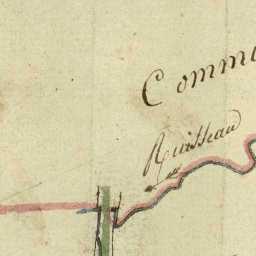 Comm
Ruisseau